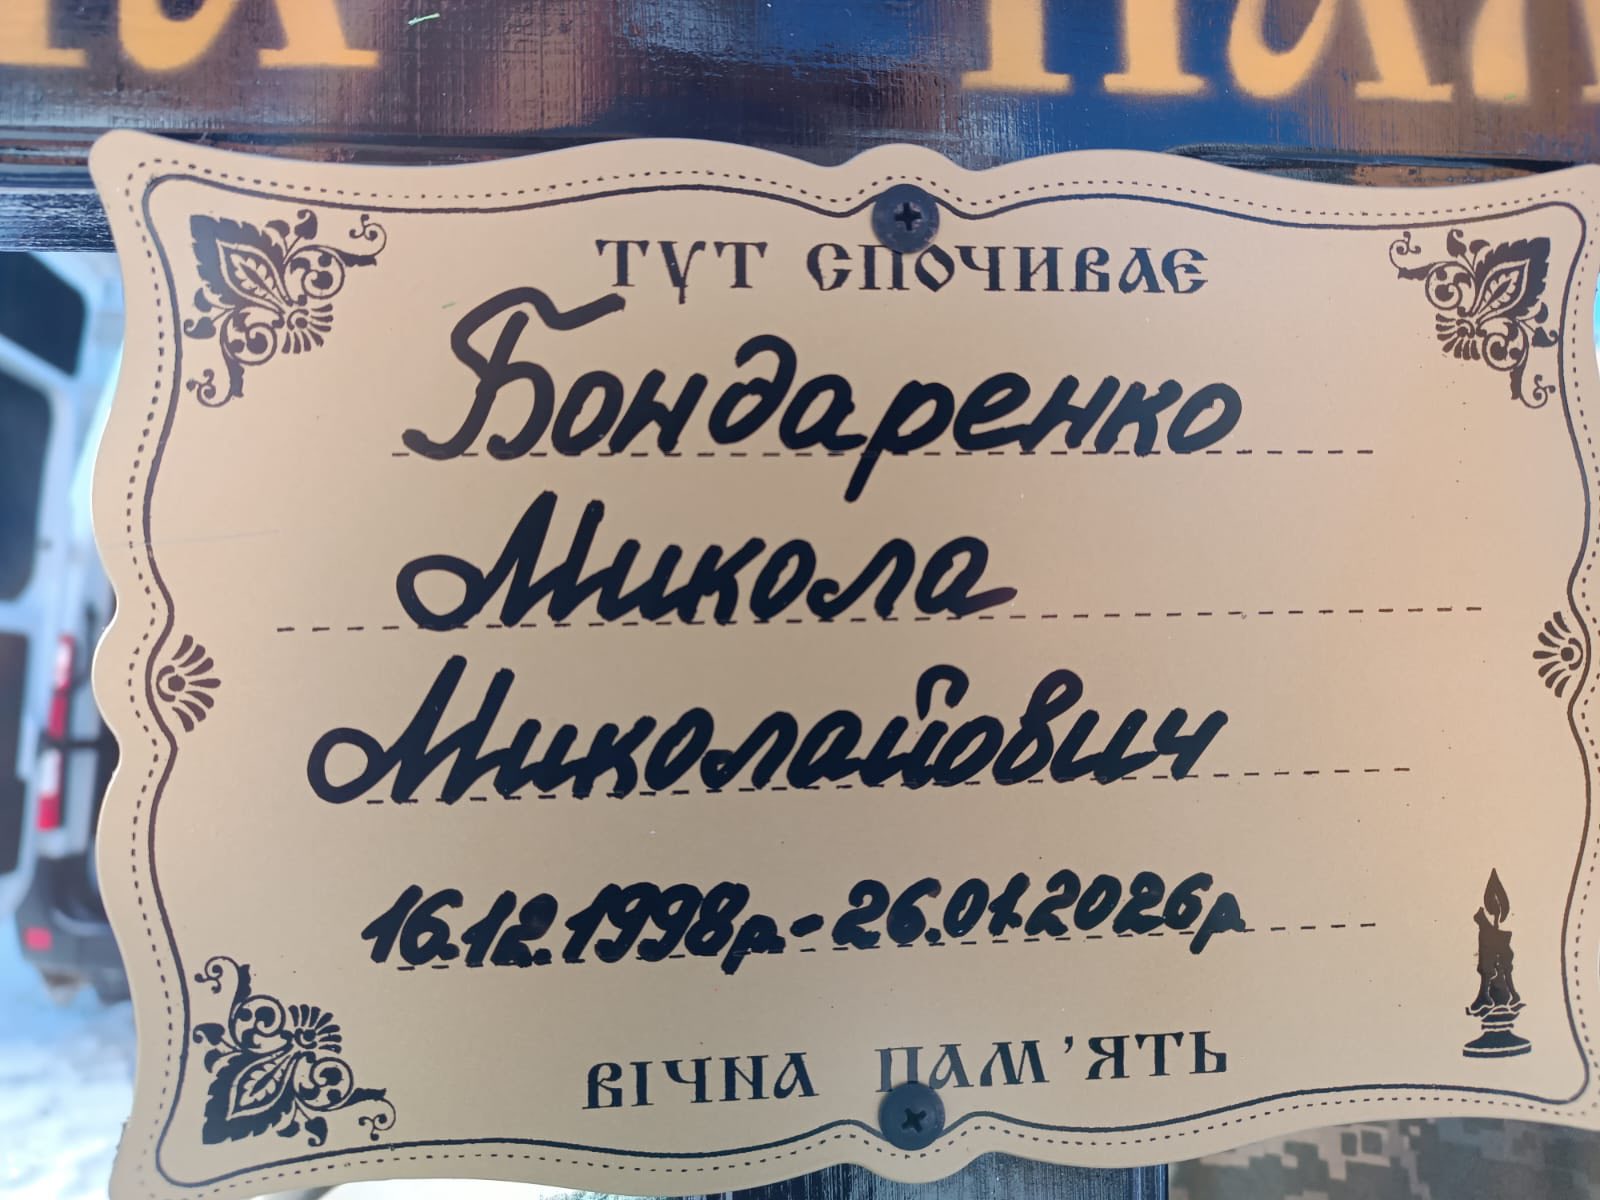 ТУТ СПОЧИВАЄ
Бондаренко
Микола
Миколайович
16.12.1998р.-26.01.2026р.
ВІЧНА ПАМ'ЯТЬ